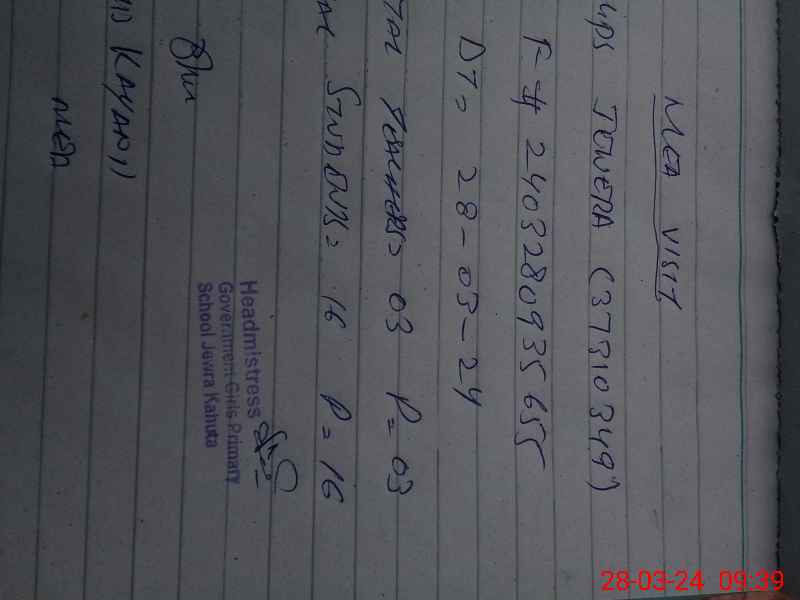 MEA VISIT
GPS JOWERA (37310349)
F-# 240328093565​5
DT= 28-03-24
TAL TEACHERS= 03 P= 03
STUDENTS= 16 P= 16
Headmistress
Government Girls Primary
School Jewra Kahuta
MEA
28-03-24 09:39